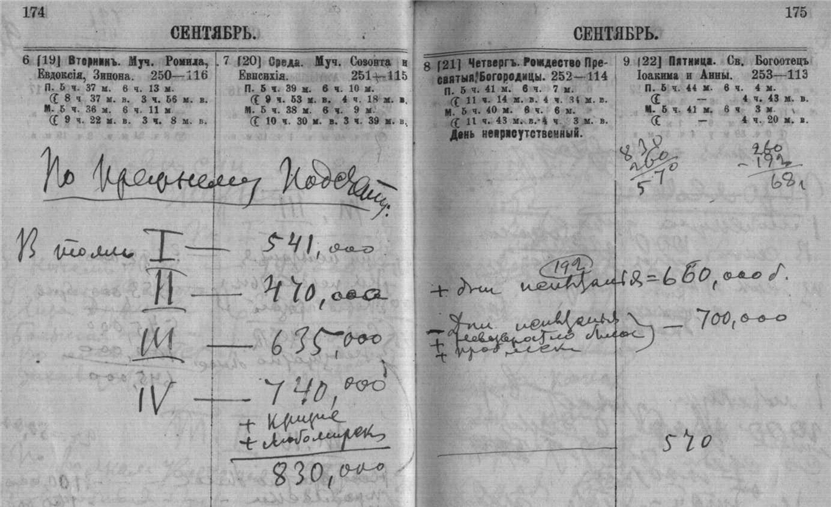 174
СЕНТЯБРЬ.
6 [19] Вторникъ. Муч. Ромила,
Евдоксія, Зинона. 250—116
П. 5 ч. 37 м. 6 ч. 13 м.
☾ 8 ч. 37 м. в. 3 ч. 56 м. в.
М. 5 ч. 36 м. 6 ч. 11 м.
☾ 9 ч. 22 м. в. 3 ч. 8 м. в.
7 [20] Среда. Муч. Созонта и
Евпсихія. 251—115
П. 5 ч. 39 м. 6 ч. 10 м.
☾ 9 ч. 53 м. в. 4 ч. 18 м. в.
М. 5 ч. 38 м. 6 ч. 9 м.
☾ 10 ч. 30 м. в. 3 ч. 39 м. в.
По прежнему подсчету:
В томъ I — 541,000
II — 470,000
III — 635,000
IV — 740,000
+
+
830,000
175
СЕНТЯБРЬ.
8 [21] Четвергъ. Рождество Пре-
святыя Богородицы. 252—114
П. 5 ч. 41 м. 6 ч. 7 м.
☾ 11 ч. 14 м. в. 4 ч. 34 м. в.
М. 5 ч. 40 м. 6 ч. 6 м.
☾ 11 ч. 43 м. в. 4 ч. 3 м. в.
День неприсутственный.
9 [22] Пятница. Св. Богоотецъ
Іоакима и Анны. 253—113
П. 5 ч. 44 м. 6 ч. 4 м.
☾ — 4 ч. 43 м. в.
М. 5 ч. 41 м. 6 ч. 3 м.
☾ — 4 ч. 20 м. в.
830
260
570
260
- 192
68
192
+ дни = 660,000 б.
- Дни
+
+
— 700,000
570